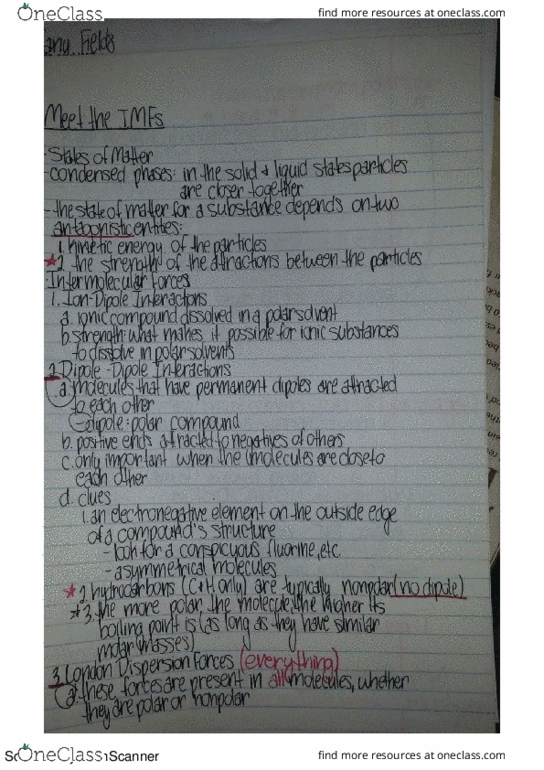 OneClass
find more resources at oneclass.com
Fields
Meet the IMFs
-States of Matter
-condensed phases: in the solid & liquid states particles
are closer together
-the state of matter for a substance depends on two
antagonistic entities:
1. kinetic energy of the particles
★2. the strength of the attractions between the particles
-Intermolecular Forces
1. Ion-Dipole Interactions
a. ionic compound dissolved in a polar solvent
b. strength: what makes it possible for ionic substances
to dissolve in polar solvents
2. Dipole-Dipole Interactions
a. molecules that have permanent dipoles are attracted
to each other
dipole: polar compound
b. positive ends attracted to negatives of others
c. only important when the molecules are close to
each other
d. clues
1. an electronegative element on the outside edge
of a compound's structure
-look for a conspicuous fluorine, etc.
-asymmetrical molecules
★2. hydrocarbons (C+H only) are typically nonpolar (no dipole)
★3. the more polar the molecule, the higher its
boiling point is (as long as they have similar
molar masses)
3. London Dispersion Forces (everything)
a. these forces are present in all molecules, whether
they are polar or nonpolar
OneClass
Scanner
find more resources at oneclass.com